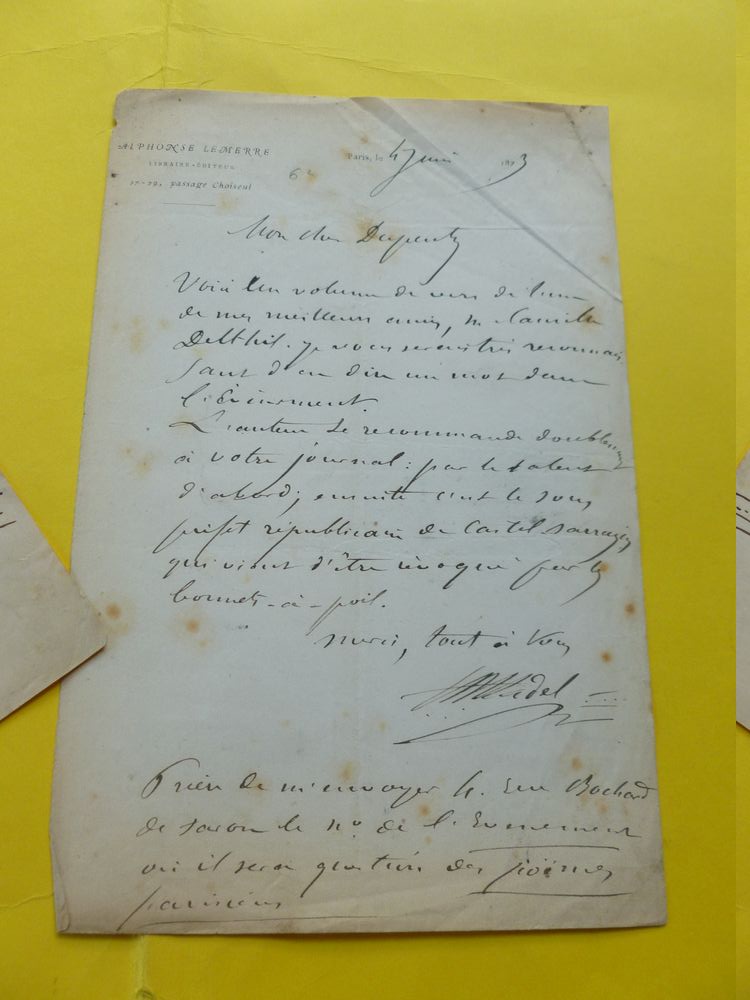 ALPHONSE LEMERRE
LIBRAIRE-ÉDITEUR
27-29, passage Choiseul
Paris, le 4 juin 1873
Mon cher
Voici un volume de vers de l'un
de mes meilleurs amis, M. Camille
Delthil. Je vous serais très reconnais
sant d'en dire un mot dans
l'Evènement.
L'auteur se recommande doublement
à votre journal: par le talent
d'abord; ensuite c'est le sous
préfet républicain de Castel-Sarrazin
qui vient d'être révoqué par les
bonnets-à-poil.
Merci, tout à vous
Prière de m'envoyer 4. rue Bochard
de Saron le nº de l'Evenement
où il sera question des poëmes
parisiens